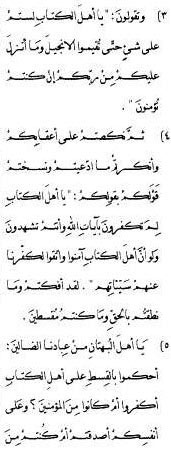 ٣) وتقولون: "يا أهل الكتاب لستم
على شيء حتى تقيموا الإنجيل وما أنزل
عليكم من ربكم إن كنتم
تؤمنون".
٤) ثم نكصتم على أعقابكم
وأنكرتم ما ادعيتم ونسختم
قولكم بقولكم: "يا أهل الكتاب
لم تكفرون بآيات الله وأنتم تشهدون
ولو أن أهل الكتاب آمنوا واتقوا لكفرنا
عنهم سيئاتهم". لقد أفكتم وما
نطقتم بالحق وما كنتم مقسطين.
٥) يا أهل البهتان من عبادنا الضالين:
احكموا بالقسط على أهل الكتاب
أكفروا أم كانوا من المؤمنين؟ وعلى
أنفسكم أصدقتم أم كنتم من